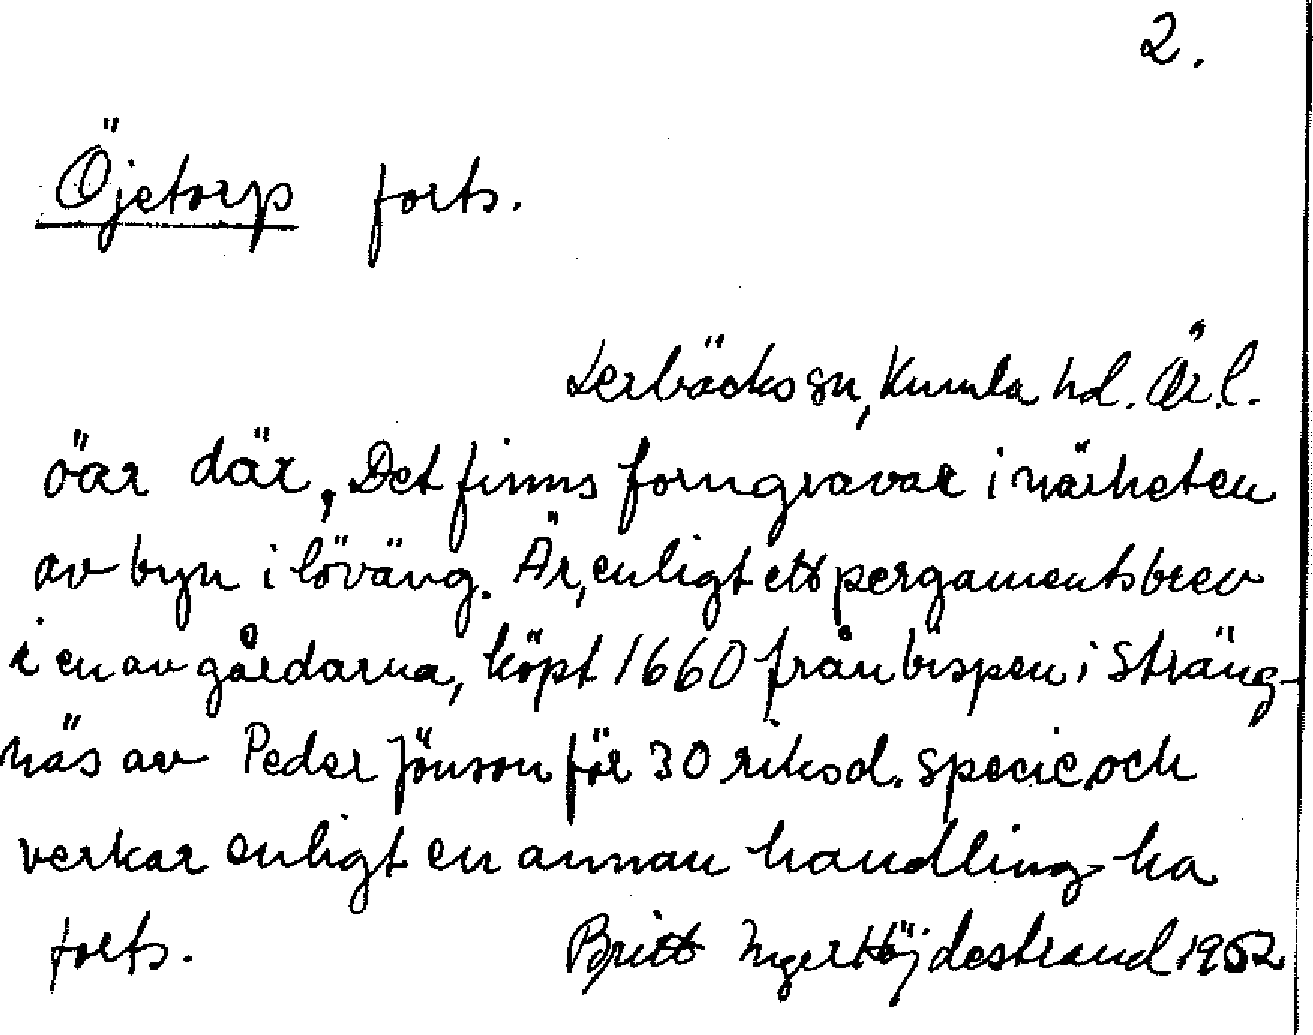 2.
Öjetorp forts.
Lerbäcks sn, Kumla hd. Ör.l.
öar där, Det finns forngravar i närheten
av byn i löväng. Är, enligt ett pergamentsbrev
i en av gårdarna, köpt 1660 från bispen i Sträng-
näs av Peder Jönson för 30 riksd. specie, och
verkar enligt en annan handling ha
forts. Britt Inger Höjdestrand 1952